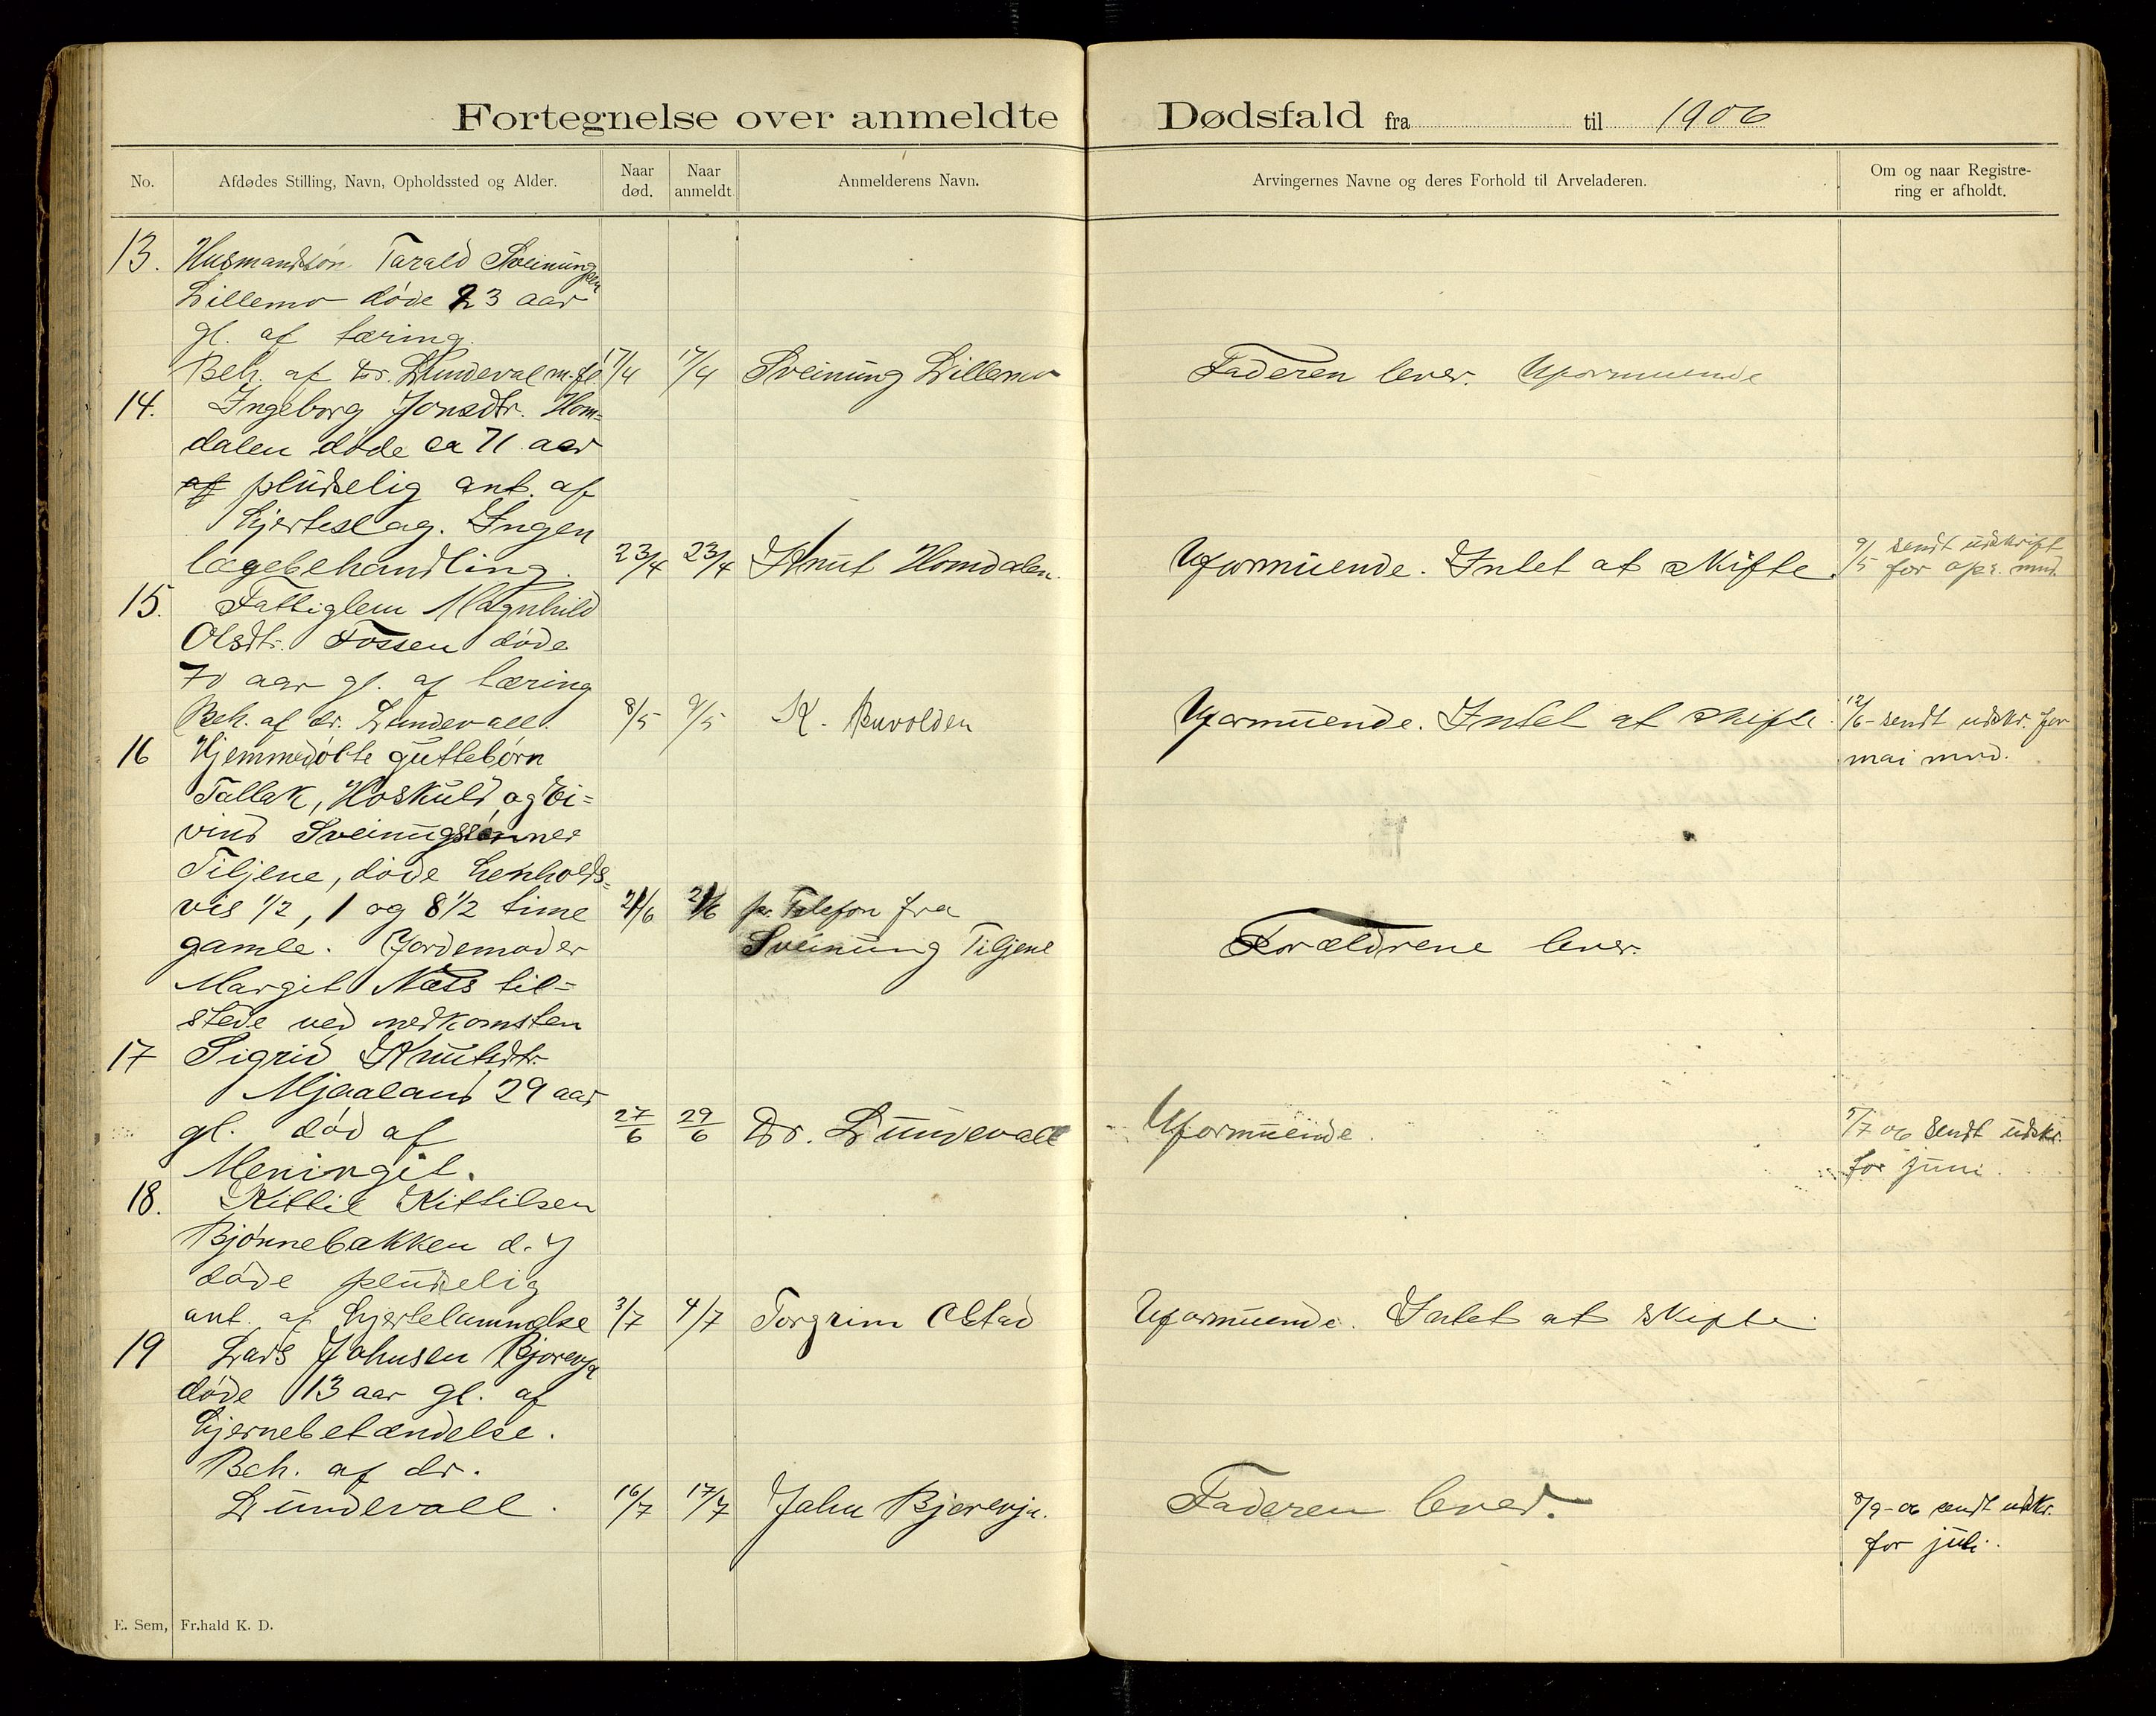 Fortegnelse over anmeldte Dødsfald fra til 1906
No.
Afdødes Stilling, Navn, Opholdssted og Alder.
Naar død.
Naar anmeldt
Anmelderens Navn.
Arvingernes Navne og deres Forhold til Arveladeren.
Om og naar Registre-
ring er afholdt.
13. Husmandssøn Tarald Sveinungsen
Lillemo døde 23 aar
gl. af tæring.
Beh. af Dr. Lundeval m. fl. 17/4 17/4 Sveinung Lillemo Faderen lever. Uformuende
14. Ingeborg Jonsdtr. Hom=
dalen døde ca 71 aar
af pludselig ant. af
hjerteslag. Ingen
lægebehandling. 23/4 23/4 Knut Homdalen. Uformuende. Intet at skifte. 9/5 sendt udskrift
for apr. mnd.
15. Fattiglem Magnhild
Olsdtr. Fossen døde
70 aar gl. af tæring
Beh. af dr. Lundevall. 8/5 9/5 K. Buvolden Uformuende. Intet at skifte. 12/6 - sendt udskr. for
mai mnd.
16 Hjemmedøbte guttebørn
Tallak, Hoskuld og Ei=
vind Sveinugssønner
Tiljene, døde henholds=
vis 1/2, 1 og 8 1/2 time 21/6 21/6 pr. Telefon fra
gamle. Jordemoder Sveinung Tiljene Forældrene lever.
Margit Næss til=
stede ved nedkomsten
17 Sigrid Knutsdtr.
Mjaaland 29 aar
gl. død af 27/6 29/6 Dr. Lundevall Uformuende. 5/7 06 sendt udskr.
Meningit. for juni.
18. Kittil Kittilsen
Bjønnebakken d. y
døde pludselig
ant. af hjertelammelse 3/7 4/7 Torgrim Olstad Uformuende. Intet at skifte.
19 Lars Johnsen Bjorevja
døde 13 aar gl. af
hjernebetændelse.
Beh. af dr.
Lundevall. 16/7 17/7 John Bjorevja. Faderen lever. 8/9-06 sendt udskr.
for juli.
E. Sem, Fr.hald K. D.